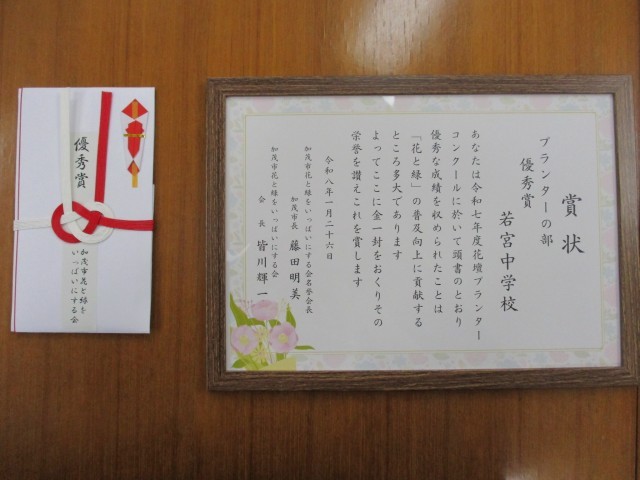 賞状
プランターの部
優秀賞
若宮中学校
あなたは令和七年度花壇プランター
コンクールに於いて頭書のとおり
優秀な成績を収められたことは
「花と緑」の普及向上に貢献する
ところ多大であります
よってここに金一封をおくりその
栄誉を讃えこれを賞します
令和八年一月二十六日
加茂市花と緑をいっぱいにする会名誉会長
加茂市長 藤田明美
加茂市花と緑をいっぱいにする会
会長 皆川輝一
優秀賞
加茂市花と緑を
いっぱいにする会